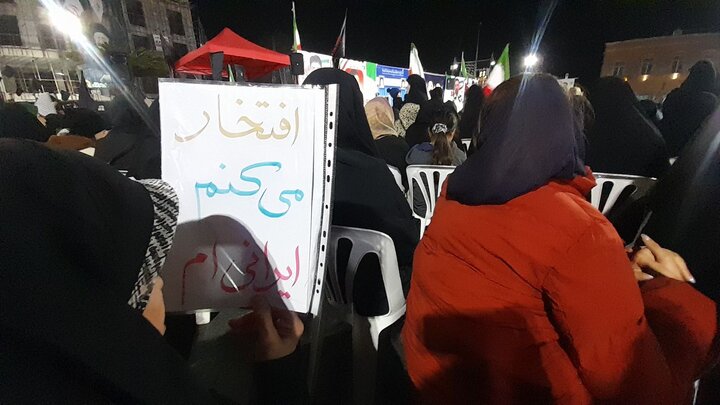 افتخار
می کنم
ایرانی ام